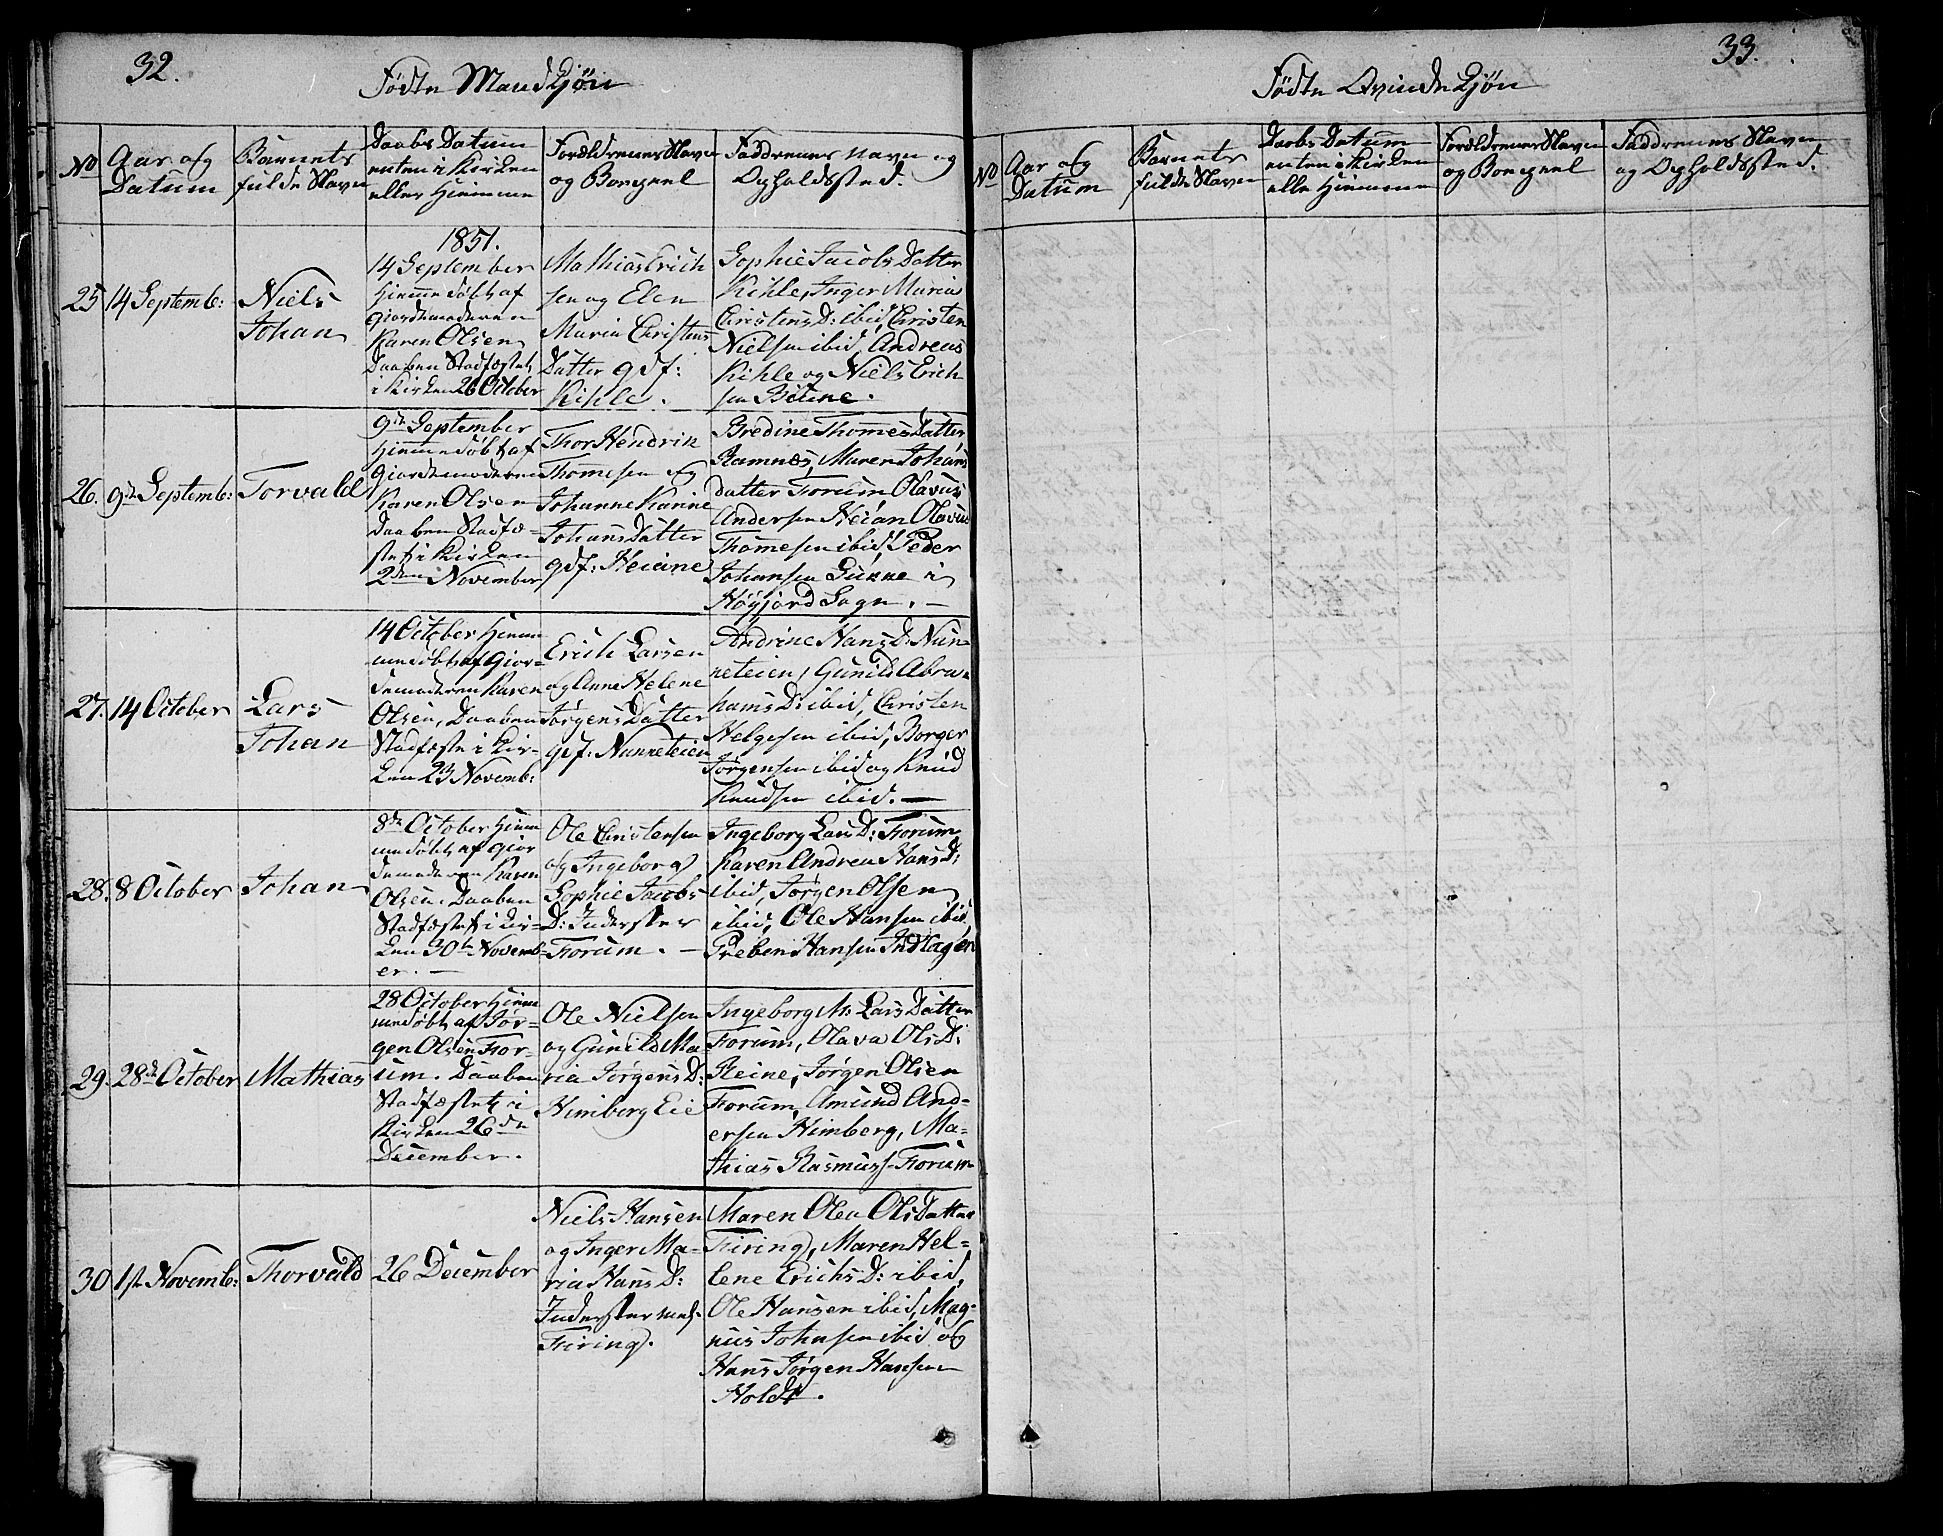 32.
Fødte Mandkjøn
No
Aar og
Datum
Barnets
fulde Navn
Daabs Datum
enten i Kirken
eller Hiemme
Forældrenes Navn
og Borgerl
Faddrenes Navn og
Opholdssted.
25
14 Septemb:
Niels
Johan
1851.
14 September
hiemmedøbt af
Giordemoderen
Karen Olsen
Daaben Stadfæstet
i Kirken 26 October
Mathias Erich
sen og Elen
Maria Christens
Datter gdf:
Kihle.
Sophie Jacobs Datter
Kihle, Inger Maria
Christens D: ibid, Christen
Nielsen ibid, Andreas
Kihle og Niels Erich
sen
26.
9de Septemb:
Torvald
9de September
hiemmedøbt af
Giordemoderen
Karen Olsen
Daaben Stadfæ-
stet i Kirken
2den November
Thor Hendrik
Thomesen og
Johanne Karine
Johans Datter
gdf: Heiane
Bredine Thomes Datter
Ramnes, Maren Johans
datter Forum, Olavus
Andersen Heian, Olavus
Thomesen ibid, Peder
Johansen i
Høyjord Sogn. —
27.
14 October
Lars
Johan
14 October hiem
medøbt af Gior-
demoderen Karen
Olsen, Daaben
Stadfæste i Kir-
ken 23 Novemb:
Erich Larsen
og Anne Helene
Jørgens Datter
gdf: Nunneteien
Andrine Hans D: Nun-
neteien, Gunild Abra-
hams D: ibid, Christen
Helgesen ibid, Borger
Jørgensen ibid og Knud
Knudsen ibid. —
28.
8 October
Johan
8de October hiem
medøbt af Gior
demoderen Karen
Olsen. Daaben
Stadfæstet i Kir-
ken 30te Novemb-
er. —
Ole Christensen
og Ingeborg
Sophie Jacobs
D: Inderster
Forum. —
Ingeborg Lars D: Forum
Karen Andrea Hans D:
ibid, Jørgen Olsen
ibid, Ole Hansen ibid,
Preben Hansen Indlagen
29.
28de October
Mathias
28 October hiem
medøbt af Jør-
gen Olsen For-
um. Daaben
Stadfæstet i
Kirken 26de
December.
Ole Nielsen
og Gunild Ma-
ria Jørgens D:
Himberg Eie
Ingeborg M: Lars Datter
Forum, Olava Ols D:
Heine, Jørgen Olsen
Forum, Amund And-
ersen Himberg, Ma-
thias Rasmuss. Forum
30
1ste Novemb:
Thorvald
26 December
Niels Hansen
og Inger Ma-
ria Hans D:
Inderster
Firing.
Maren Olea Ols Datter
Firing, Maren Hel-
lene Erichs D: ibid,
Ole Hansen ibid, Mag-
nus Johnsen ibid og
Hans Jørgen Hansen
Holdt.
33.
Fødte Qvindekjøn
No
Aar og
Datum
Barnets
fulde Navn
Daabs Datum
enten i Kirken
elle Hiemme
Forældrenes Navn
og Borgerl
Faddrenes Navn
og Opholdssted.